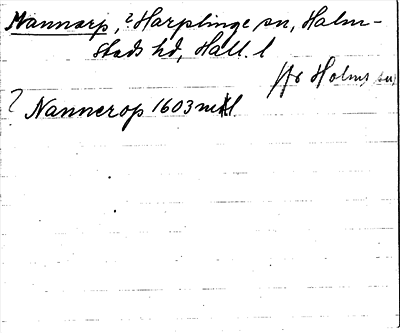 Nannarp, ? Harplinge sn, Halm-
stads hd, Hall. l
Holms sn
? Nannerop 1603 mtl